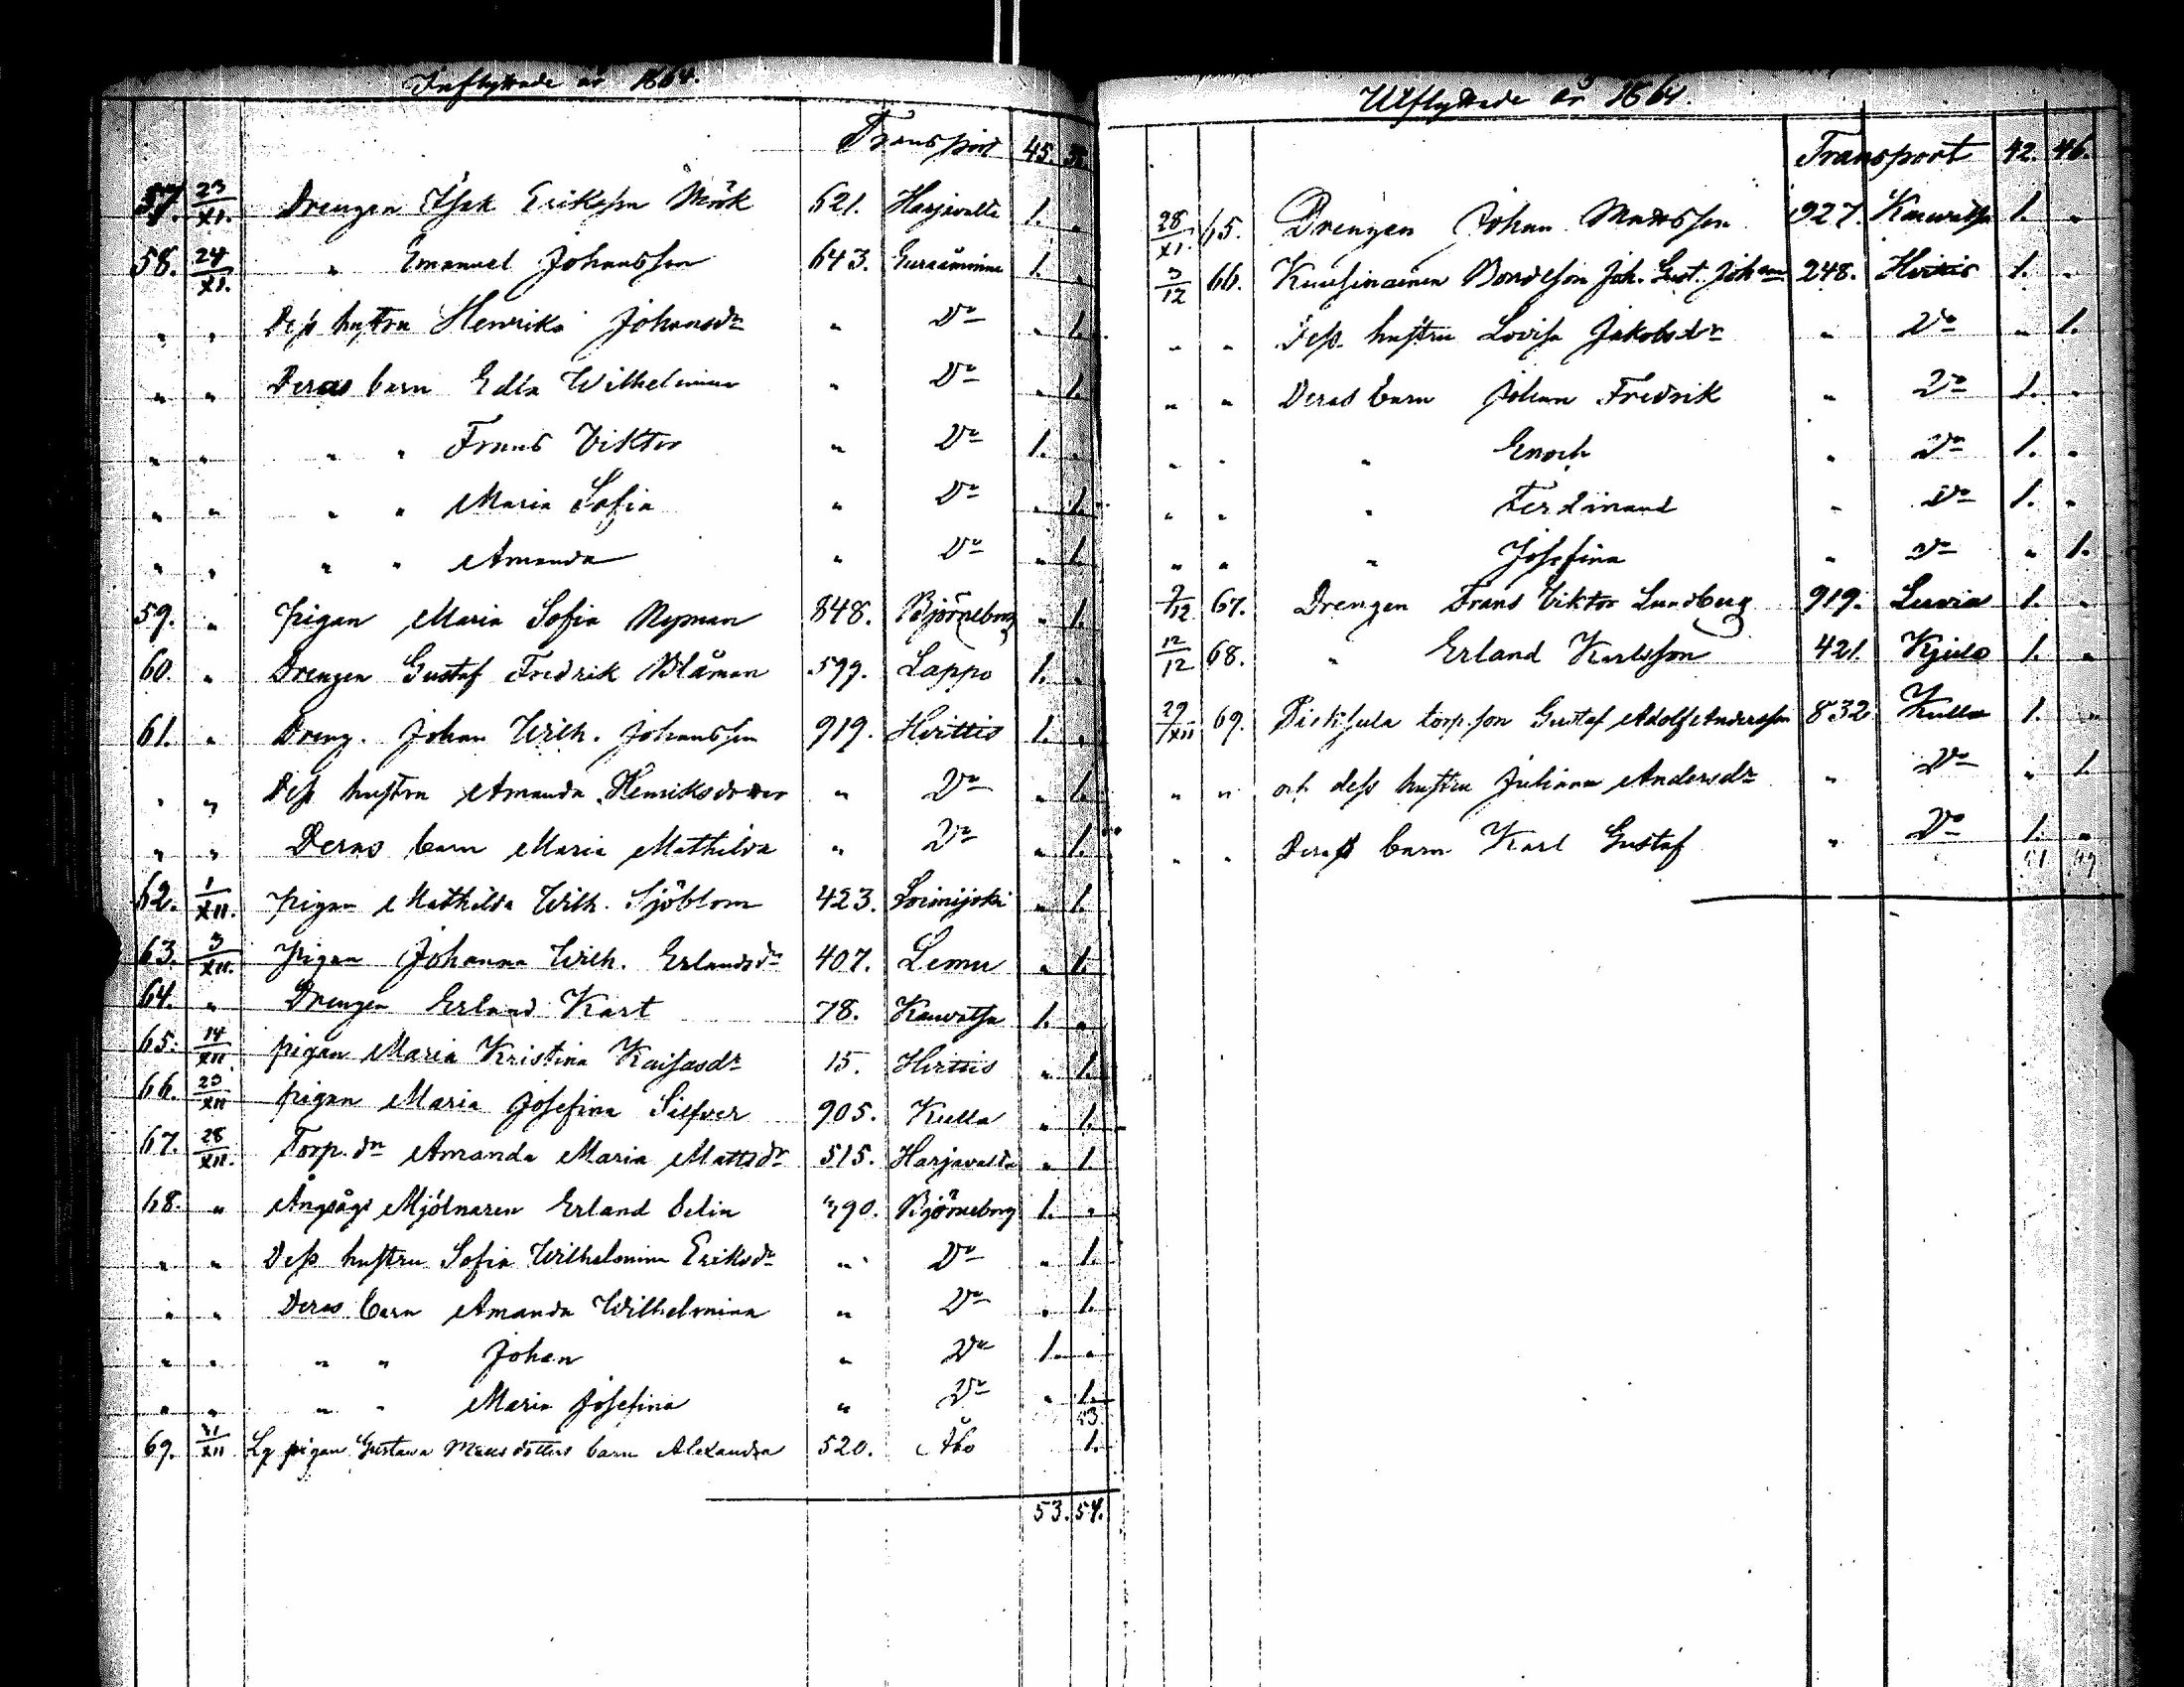 Inflyttade år 1864.
Transport 45.
57. 23/XI. Drengen Isak Eriksson Mörk 621. Harjavalta 1. "
58. 24/XI. " Emanuel Johansson 643. Euraåminne 1. "
" " Dess hustru Henrika Johansdr " Do " 1.
" " Deras barn Edla Wilhelmina " Do " 1.
" " " " Frans Viktor " Do 1. "
" " " " Maria Sofia " Do " 1.
" " " " Amanda " Do " 1.
59. " pigan Maria Sofia Nyman 848. Björneborg " 1.
60. " Drengen Gustaf Fredrik Blåman 599. Lappo 1. "
61. " Dreng. Johan Wilh. Johansson 919. Hvittis 1. "
" " Dess hustru Amanda Henriksdotter " Do " 1.
" " Deras barn Maria Mathilda " Do " 1.
62. 1/XII. pigan Mathilda Wilh. Sjöblom 423. Loimijoki " 1.
63. 3/XII. pigan Johanna Wilh. Erlandsdr 407. Lemu " 1.
64. " Drengen Erland Kart 78. Kauvatsa 1. "
65. 14/XII pigan Maria Kristina Kaisasdr 15. Hvittis " 1.
66. 23/XII pigan Maria Josefina Silfver 905. Kulla " 1.
67. 28/XII. Torp. dr Amanda Maria Mattsdr 515. Harjavalta " 1.
68. " Ångsågs Mjölnaren Erland Selin 790. Björneborg 1. "
" " Dess hustru Sofia Wilhelmina Eriksdr " Do " 1.
" " Deras barn Amanda Wilhelmina " Do " 1.
" " " " Johan " Do 1. "
" " " " Maria Josefina " Do " 1.
53
69. 31/XII Lg pigan Gustava Mattsdotters barn Alexandra 520. Åbo 1.
53. 54.
Utflyttade år 1864.
Transport 42. 46.
28/XI. 65. Drengen Johan Mattsson 927. Kauvatsa 1. "
3/12 66. Bondeson Joh. Gust. Johansson 248. Hvittis 1. "
" " Dess hustru Lovisa Jakobsdr " Do " 1.
" " Deras barn Johan Fredrik " Do 1. "
" " " Enoch " Do 1. "
" " " Ferdinand " Do 1. "
" " " Josefina " Do " 1.
7/12 67. Drengen Frans Viktor Lundberg 919. Luvia 1. "
12/12 68. " Erland Karlsson 421. Kjulo 1. "
29/XII 69. torp. son Gustaf Adolf Andersson 832. Kulla 1. "
" " och dess hustru Juliana Andersdr " Do " 1
" " Deras barn Karl Gustaf " Do 1. "
51 49